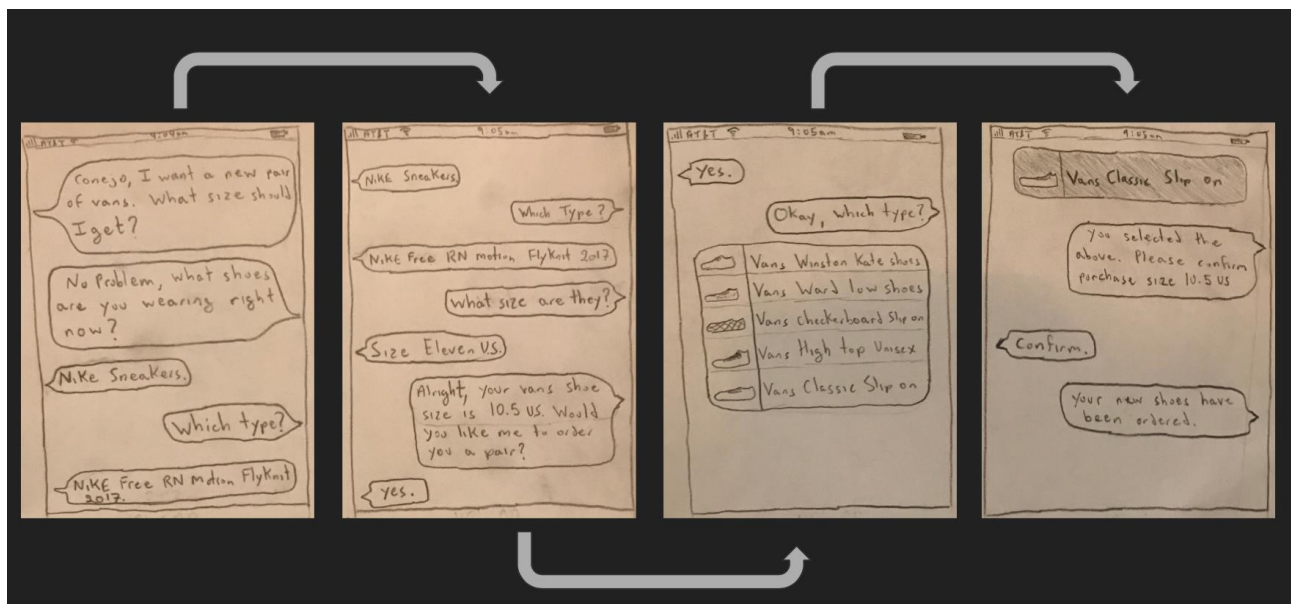 AT&T 9:04am
Conejo, I want a new pair
of vans. What size should
I get?
No Problem, what shoes
are you wearing right
now?
NiKE Sneakers.
Which type?
NiKE Free RN Motion FlyKnit
2017.
AT&T 9:05am
NiKE Sneakers
Which Type?
NiKE Free RN motion FlyKnit 2017
What size are they?
Size Eleven U.S.
Alright, your vans shoe
size is 10.5 US. Would
you like me to order
you a pair?
yes.
AT&T 9:05am
yes.
Okay, which type?
Vans Winston Kate shoes
Vans Ward low shoes
Vans Checkerboard Slip on
Vans High top Unisex
Vans Classic Slip on
AT&T 9:05am
Vans Classic Slip on
You selected the
above. Please confirm
purchase size 10.5 US
Confirm.
Your new shoes have
been ordered.